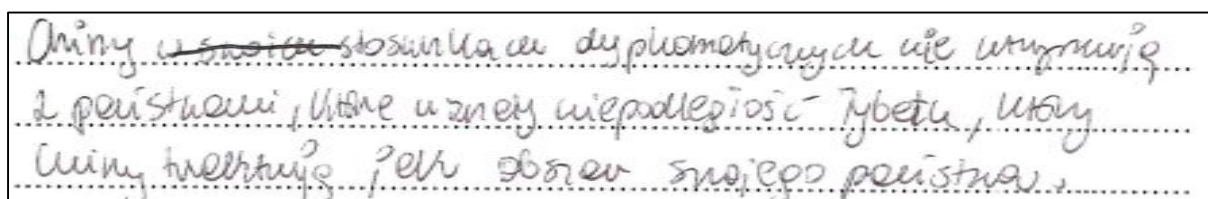 Chiny w swoich stosunkach dyplomatycznych nie utrzymują
z państwami, które uznały niepodległość Tybetu, który
Chiny traktują jak obszar swojego państwa.